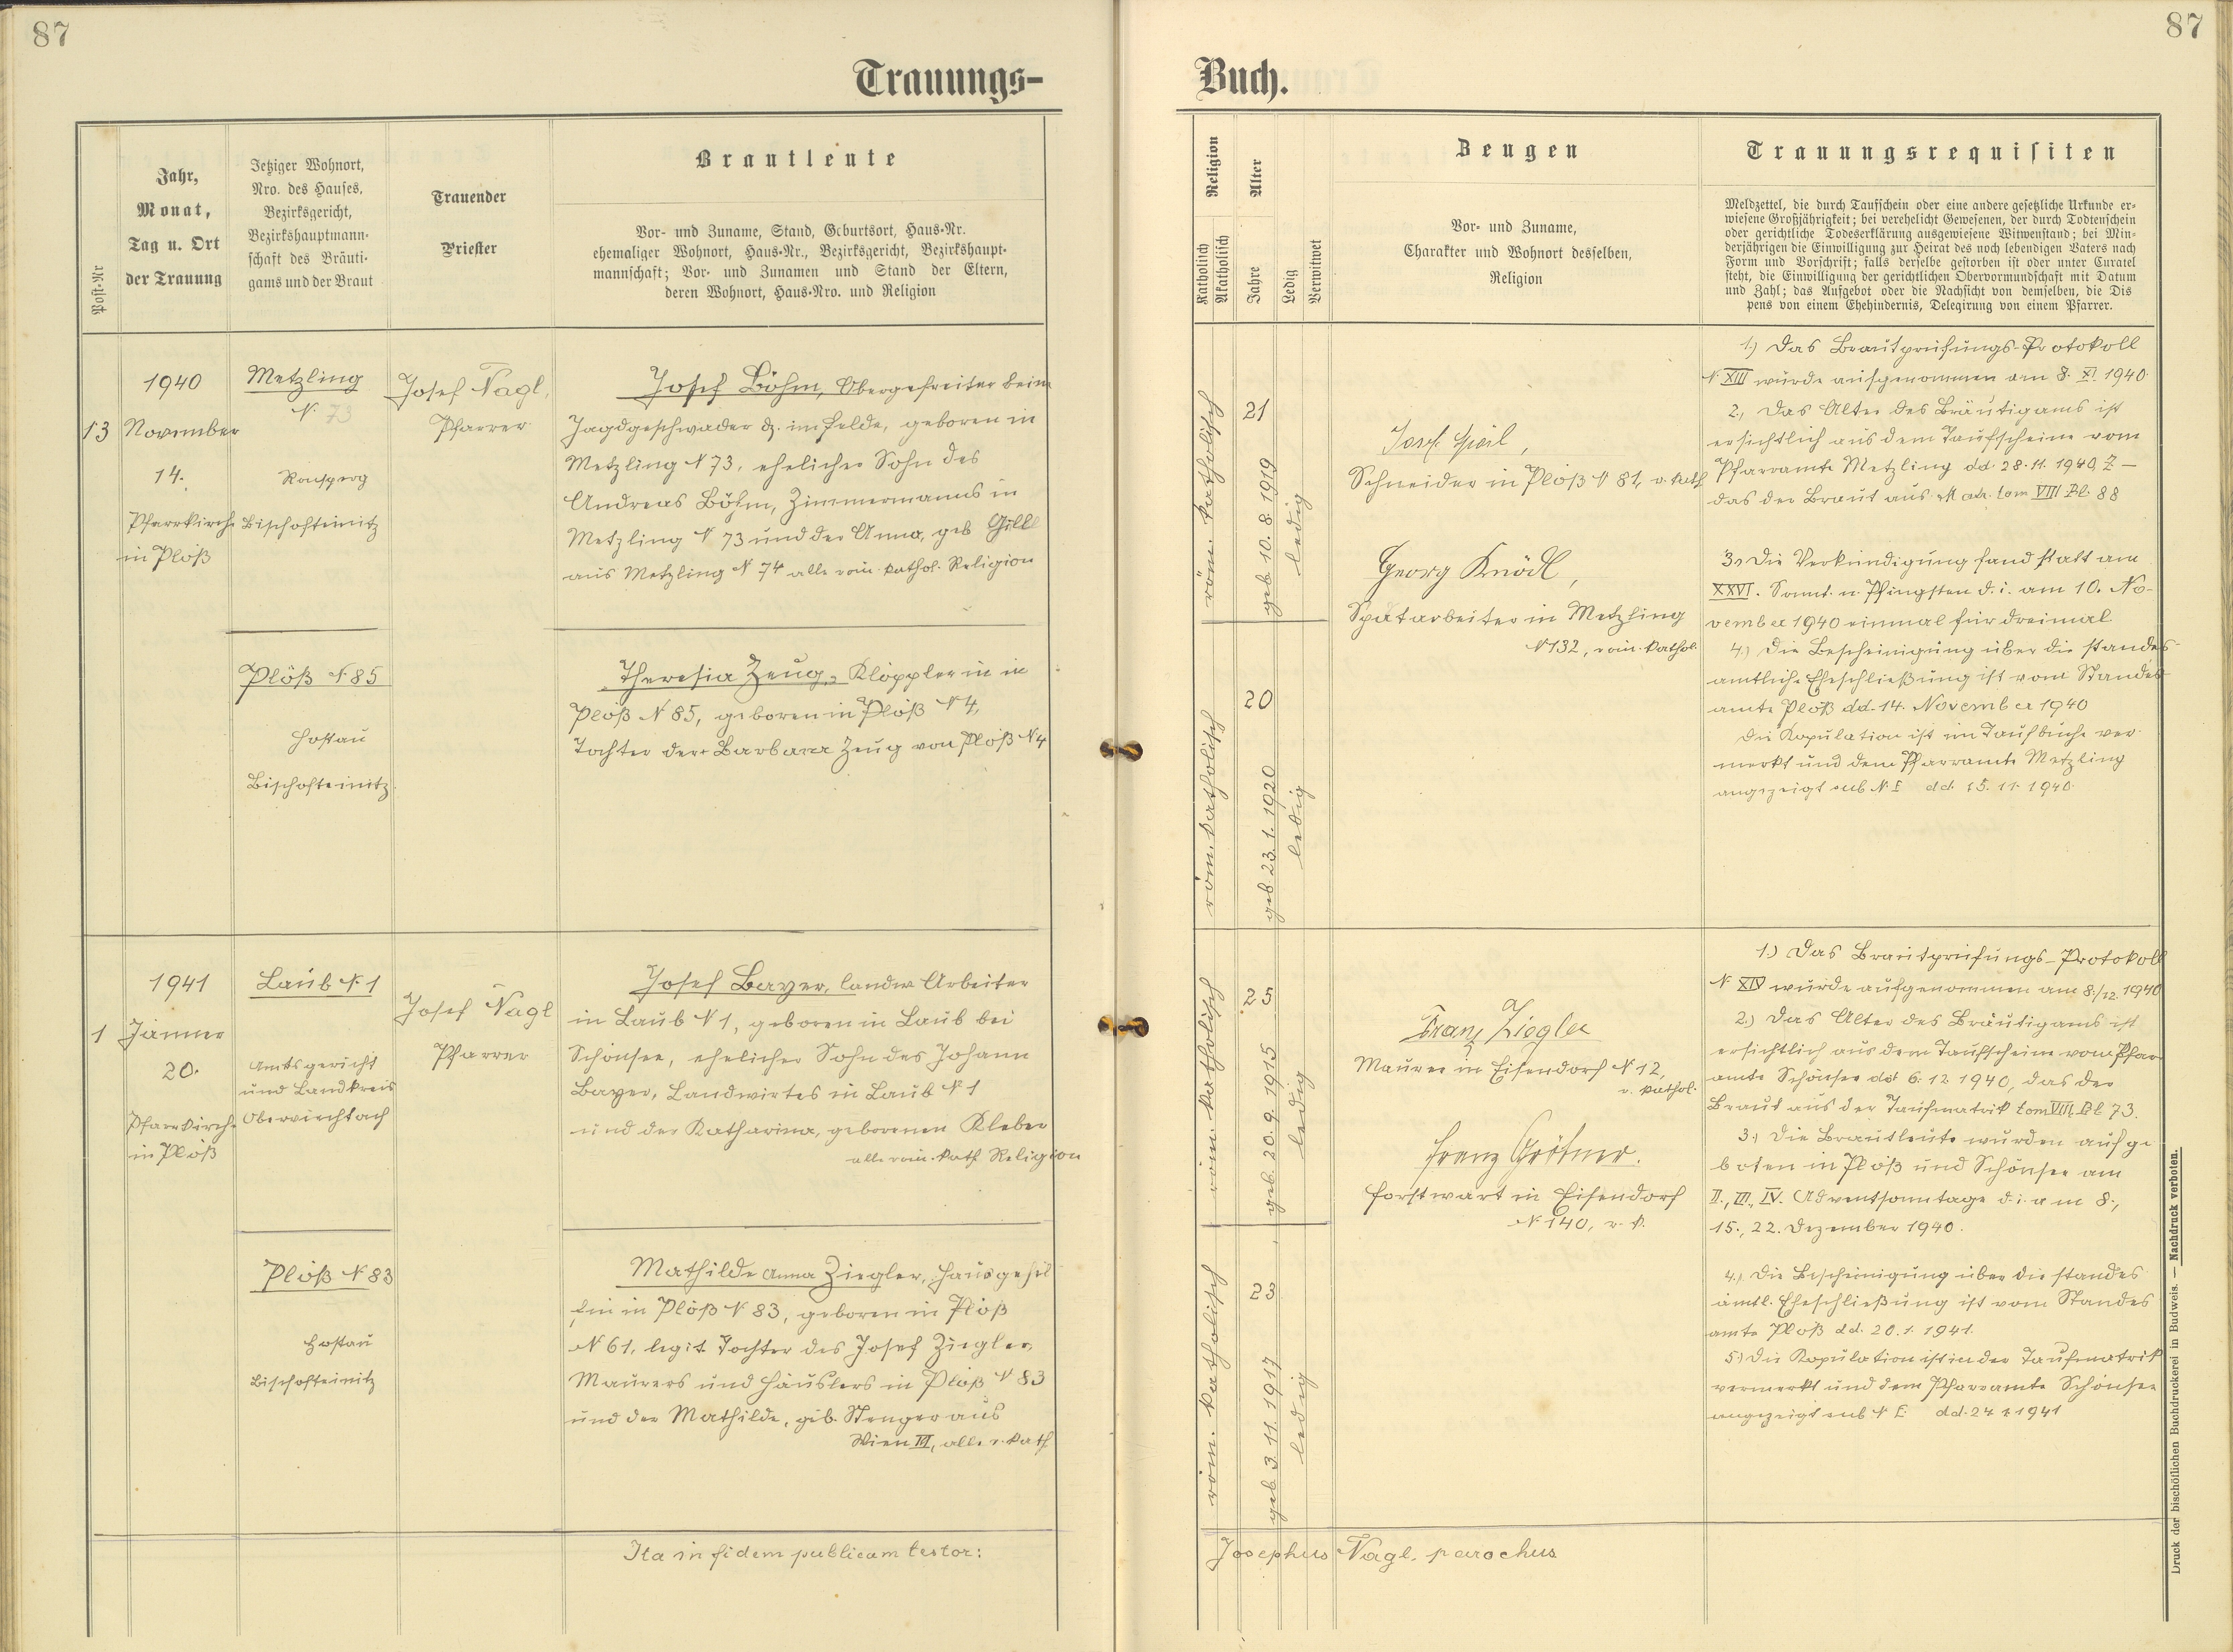 87
87
Trauungs-
Buch.
Post-Nr
Jahr,
Monat,
Tag u. Ort
der Trauung
Jetziger Wohnort,
Nro. des Hauses,
Bezirksgericht,
Bezirkshauptmann-
schaft des Bräuti-
gams und der Braut
Trauender
Priester
Brautleute
Vor- und Zuname, Stand, Geburtsort, Haus-Nr.
ehemaliger Wohnort, Haus-Nr., Bezirksgericht, Bezirkshaupt-
mannschaft; Vor- und Zunamen und Stand der Eltern,
deren Wohnort, Haus-Nro. und Religion
Religion
Katholisch
Akatholisch
Alter
Jahre
Ledig
Verwitwet
Zeugen
Vor- und Zuname,
Charakter und Wohnort desselben,
Religion
Trauungsrequisiten
Meldzettel, die durch Taufschein oder eine andere gesetzliche Urkunde er-
wiesene Großjährigkeit; bei verehelicht Gewesenen, der durch Todtenschein
oder gerichtliche Todeserklärung ausgewiesene Witwenstand; bei Min-
derjährigen die Einwilligung zur Heirat des noch lebendigen Vaters nach
Form und Vorschrift; falls derselbe gestorben ist oder unter Curatel
steht, die Einwilligung der gerichtlichen Obervormundschaft mit Datum
und Zahl; das Aufgebot oder die Nachsicht von demselben, die Dis
pens von einem Ehehindernis, Delegirung von einem Pfarrer.
13
1940
November
14.
Pfarrkirche
in Plöß
Metzling
N. 73
Ronsperg
Bischofteinitz
Josef Nagl,
Pfarrer
Josef Böhm, Obergefreiter beim
Jagdgeschwader dz. im Felde, geboren in
Metzling N 73, ehelicher Sohn des
Andreas Böhm, Zimmermanns in
Metzling N 73 und der Anna, geb Gill
aus Metzling N 74 alle röm. kathol. Religion
Plöß N 85
Hostau
Bischofteinitz
Theresia Zeug, Klöpplerin in
Plöß N 85, geboren in Plöß N 4,
Tochter der Barbara Zeug von Plöß N 4
röm. katholisch
21
geb 10. 8. 1919
ledig
röm. katholisch
20
geb 23. 1. 1920
ledig
Josef
Schneider in Plöß N 81, r. kath
Georg Knödl,
Spatarbeiter in Metzling
N 132, röm. kathol.
1.) Das Brautprüfungs-Protokoll
N. XIII wurde aufgenommen am 8. XI. 1940.
2., Das Alter des Bräutigams ist
ersichtlich aus dem Taufscheine vom
Pfarramte Metzling dd. 28. 11. 1940, Z –
das der Braut aus Matr. tom VIII Bl. 88
3., Die Verkündigung fand statt am
XXVI. Sonnt. n. Pfingsten d. i. am 10. No-
vember 1940 einmal für dreimal
4.) Die Bescheinigung über die standes-
amtliche Eheschließung ist vom Standes
amte Plöß dd. 14. November 1940
Die Kopulation ist im Taufbuche ver-
merkt und dem Pfarramte Metzling
angezeigt sub N. E dd. 15. 11. 1940.
1
1941
Jänner
20.
Pfarrkirche
in Plöß
Laub N. 1
Amtsgericht
und Landkreis
Oberviechtach
Josef Nagl
Pfarrer
Josef Bayer, landw Arbeiter
in Laub N 1, geboren in Laub bei
Schönsee, ehelicher Sohn des Johann
Bayer, Landwirtes in Laub N 1
und der Katharina, geborenen Kleber
alle röm. kath Religion
Plöß N 83
Hostau
Bischofteinitz
Mathilde Anna Ziegler, Hausgehil
fin in Plöß N 83, geboren in Plöß
N 61, legit. Tochter des Josef Ziegler,
Maurers und Häuslers in Plöß N 83
und der Mathilde, geb. Stenger aus
Wien VI, alle r. kath
röm. katholisch
25
geb. 20. 9. 1915
ledig
röm. katholisch
23
geb 3. 11. 1917
ledig
Franz Ziegler
Maurer in Eisendorf N 12,
r. kathol.
Franz Größner.
Forstwart in Eisendorf
N 140, r. k.
1.) Das Brautprüfungs-Protokoll
N XIV wurde aufgenommen am 8./12. 1940
2.) Das Alter des Bräutigams ist
ersichtlich aus dem Taufscheine vom Pfar
amte Schönsee ddt 6. 12. 1940, das der
Braut aus der Taufmatrik tom VIII Bl 73.
3.) Die Brautleute wurden aufge
boten in Plöß und Schönsee am
II., III., IV. Adventsonntage d. i. am 8.,
15., 22. Dezember 1940.
4.) Die Bescheinigung über die standes
amtl. Eheschließung ist vom Standes
amte Plöß dd. 20. 1. 1941.
5.) Die Kopulation ist in der Taufmatrik
vermerkt und dem Pfarramte Schönsee
angezeigt sub N E dd. 24. 1. 1941
Ita in fidem publicam testor:
Josephus Nagl, parochus
Druck der bischöflichen Buchdruckerei in Budweis. — Nachdruck verboten.